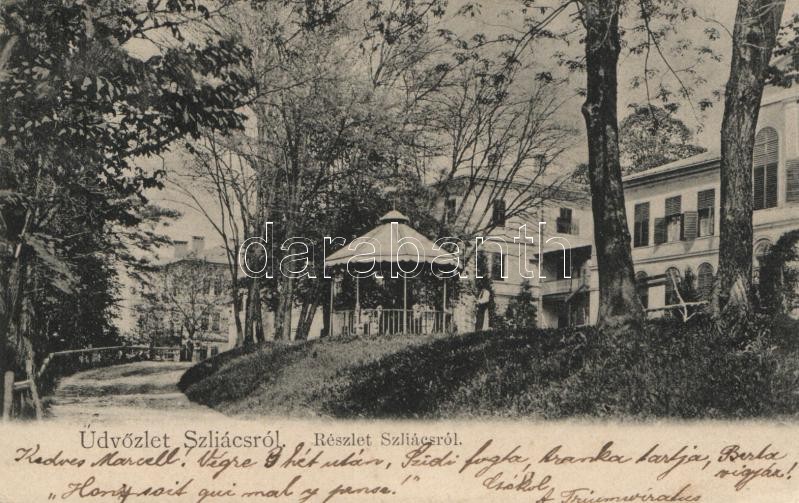 darabanth
Üdvőzlet Szliácsról. Részlet Szliácsról.
Kedves Marcell! Végre 3 hét után, Szidi fogta, Franka tartja, Berta vigyáz!
"Hony soit qui mal y panse!" Csókol A Triumviratus